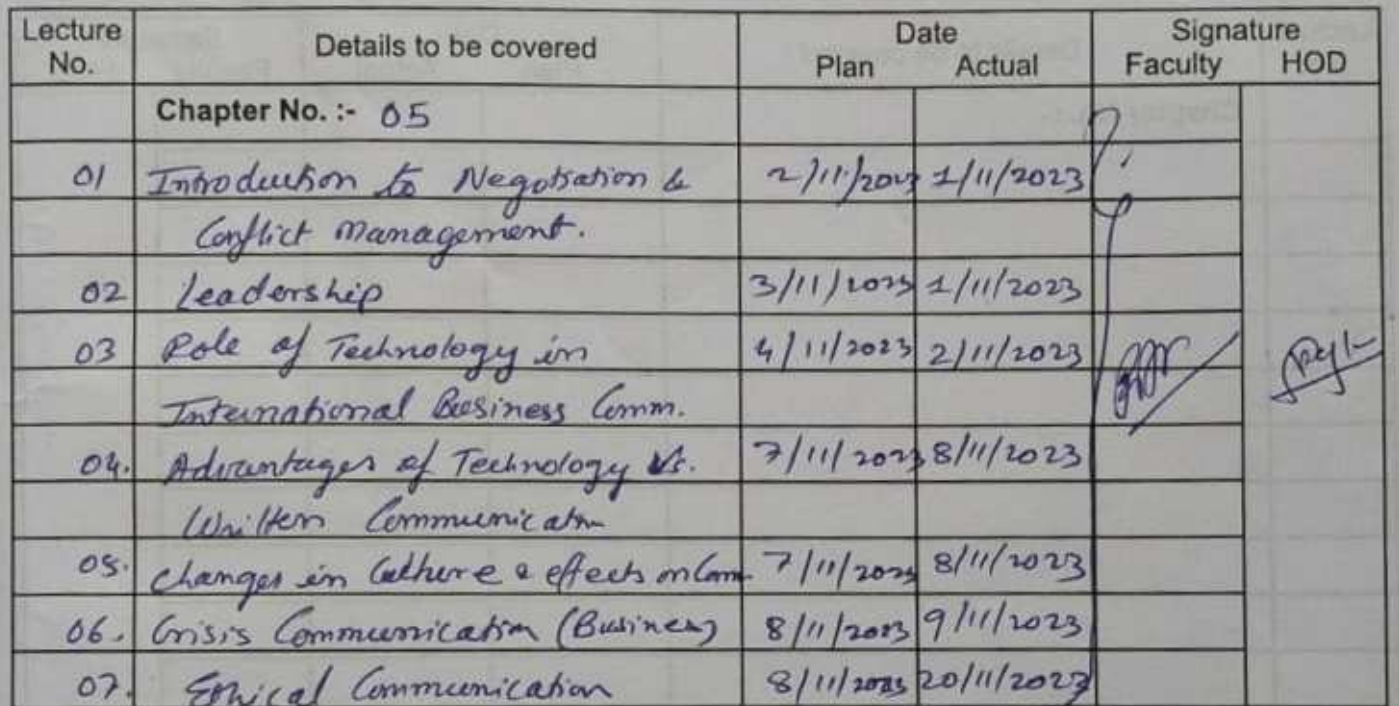 Lecture No. Details to be covered Date Signature
Plan Actual Faculty HOD
Chapter No. :- 05
01 Introduction to Negotiation & 2/11/2023 1/11/2023
Conflict Management.
02 Leadership 3/11/2023 1/11/2023
03 Role of Technology in 4/11/2023 2/11/2023
International Business Comm.
04. Advantages of Technology Vs. 7/11/2023 8/11/2023
Written Communication
05. Changes in Culture & effects on Com. 7/11/2023 8/11/2023
06. Crisis Communication (Business) 8/11/2023 9/11/2023
07. Ethical Communication 8/11/2023 20/11/2023